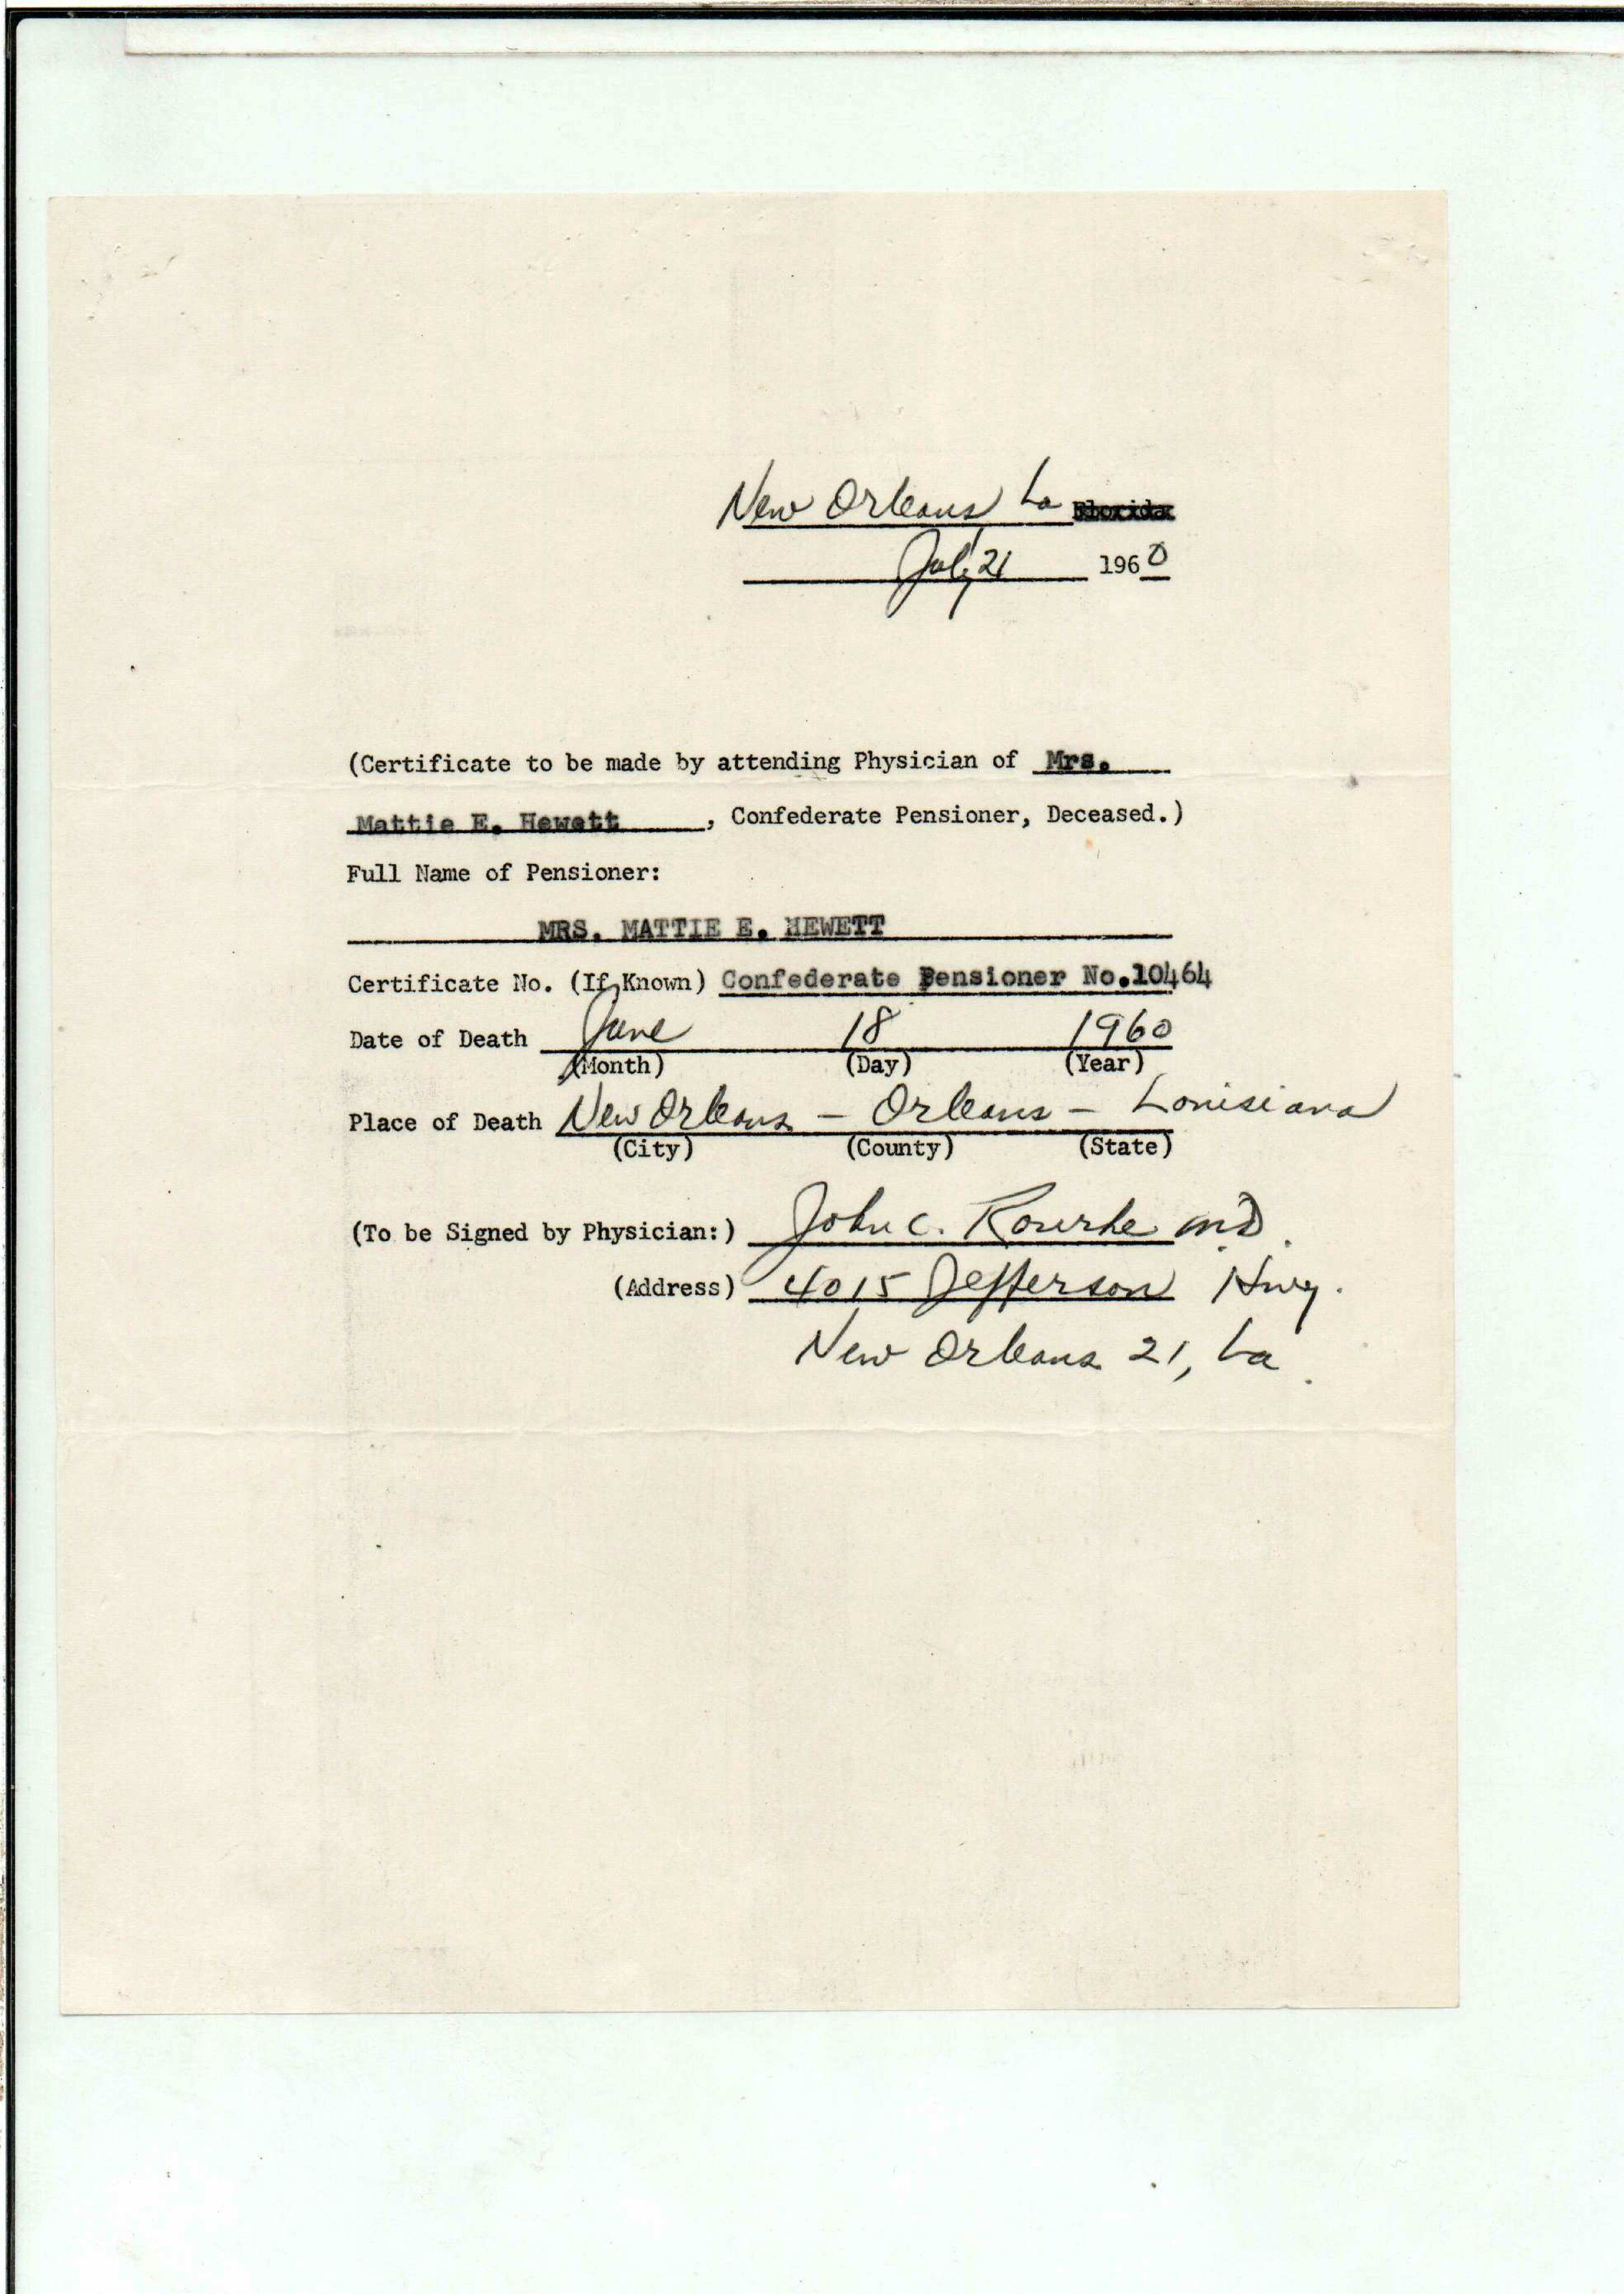 New Orleans La Florida
July 21 1960
(Certificate to be made by attending Physician of Mrs.
Mattie E. Hewett, Confederate Pensioner, Deceased.)
Full Name of Pensioner:
MRS. MATTIE E. HEWETT
Certificate No. (If Known) Confederate Pensioner No.10464
Date of Death June 18 1960
(Month) (Day) (Year)
Place of Death New Orleans - Orleans - Louisiana
(City) (County) (State)
(To be Signed by Physician:) John C. Rourke MD.
(Address) 4015 Jefferson Hwy.
New Orleans 21, La.